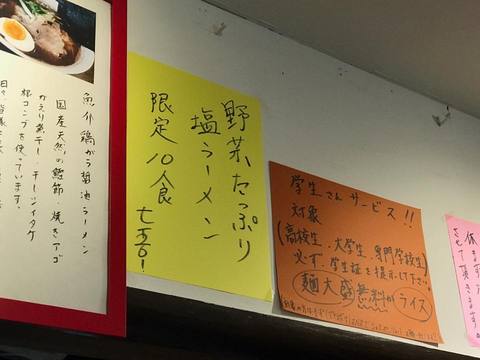 魚介鶏がら醤油ラーメン
国産天然の鰹節・焼きアゴ
かえり煮干し・干しシイタケ
根コンブを使っています。
野菜たっぷり
塩ラーメン
限定10人食
七五〇!
学生さんサービス!!
対象
(高校生・大学生・専門学校生)
必ず、学生証を提示して下さい
麺大盛無料かライス
休ませ
させて頂きます